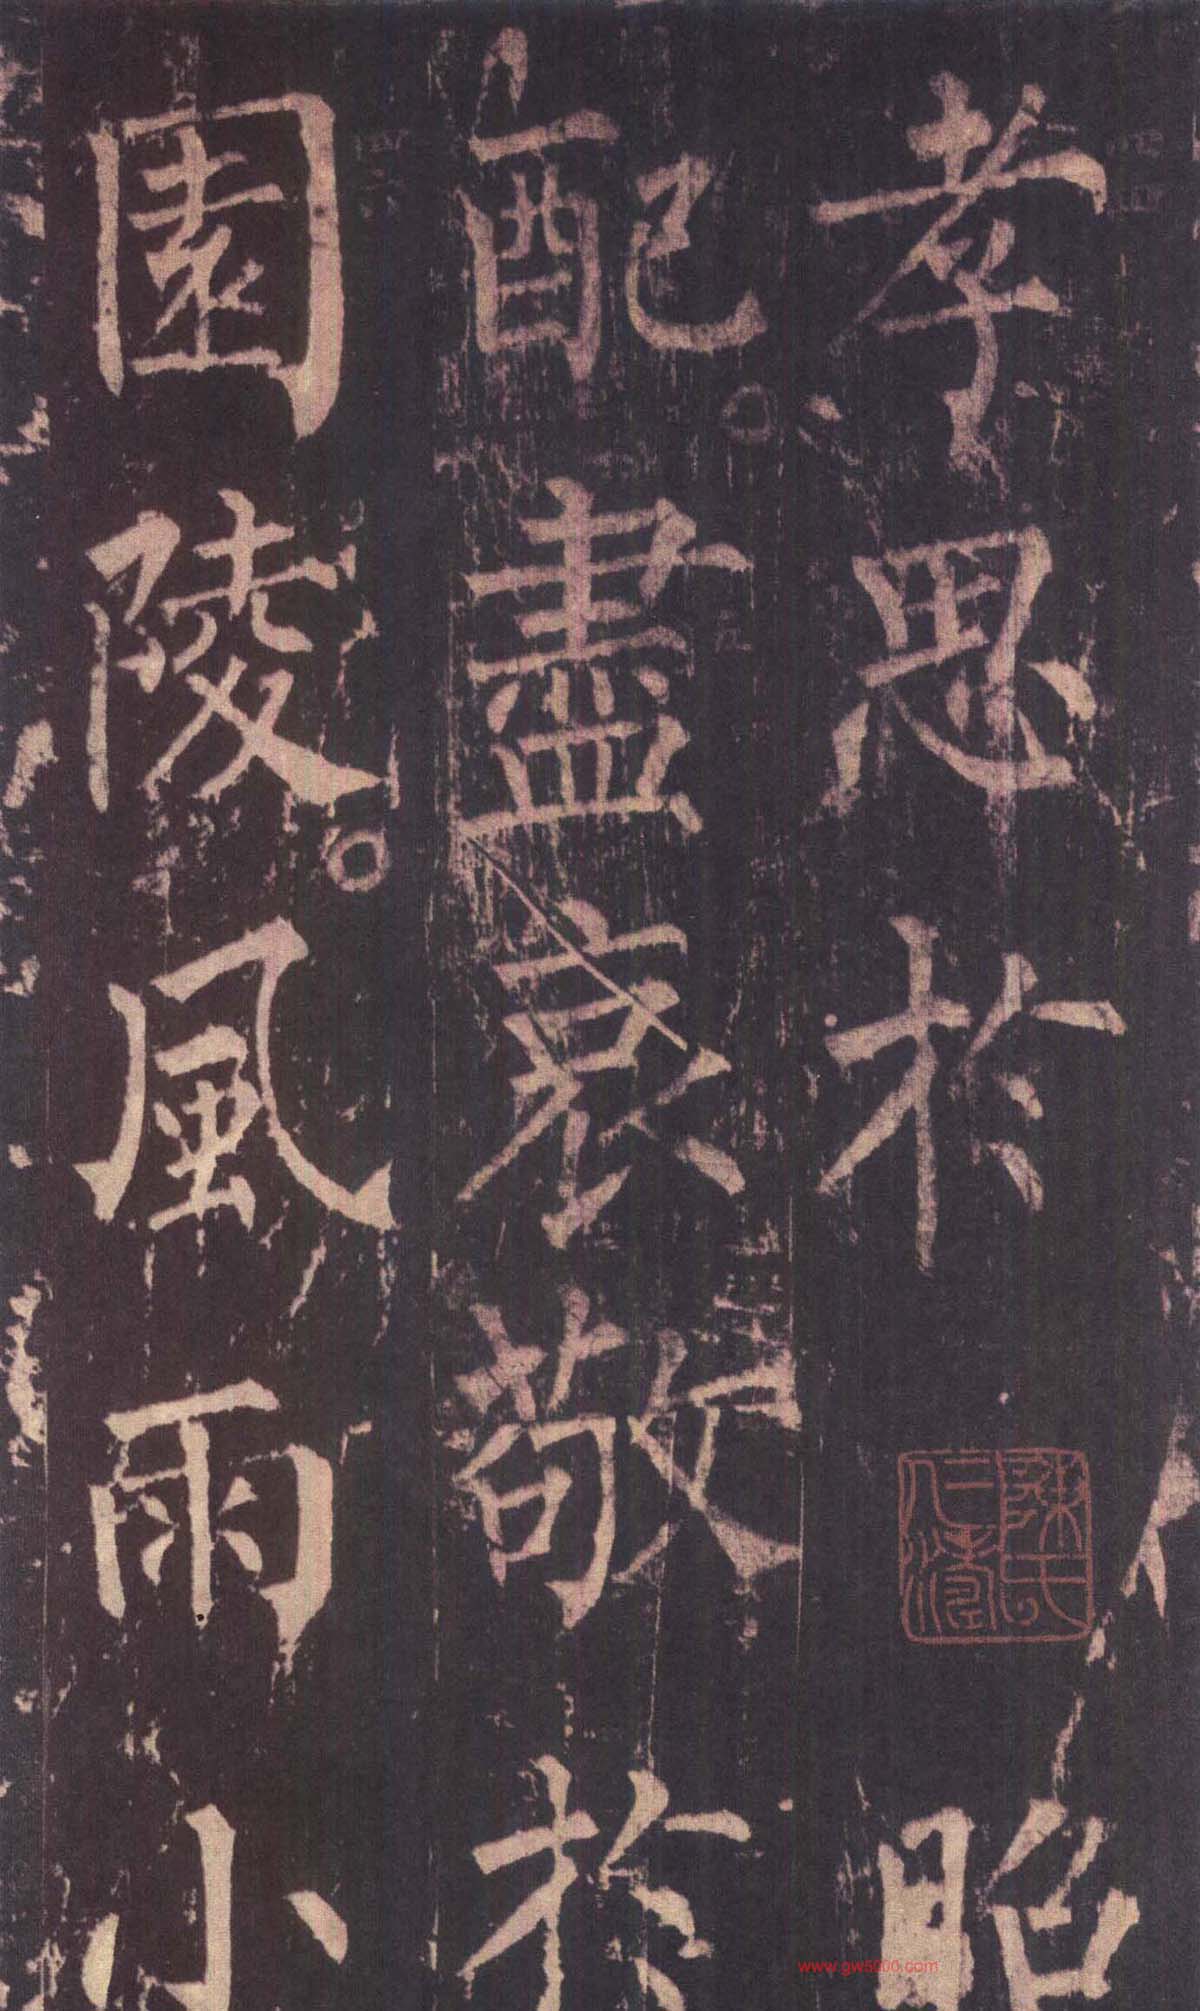 孝思於 昭
配盡哀敬於
園陵風雨小
陳氏
www.gw5000.com